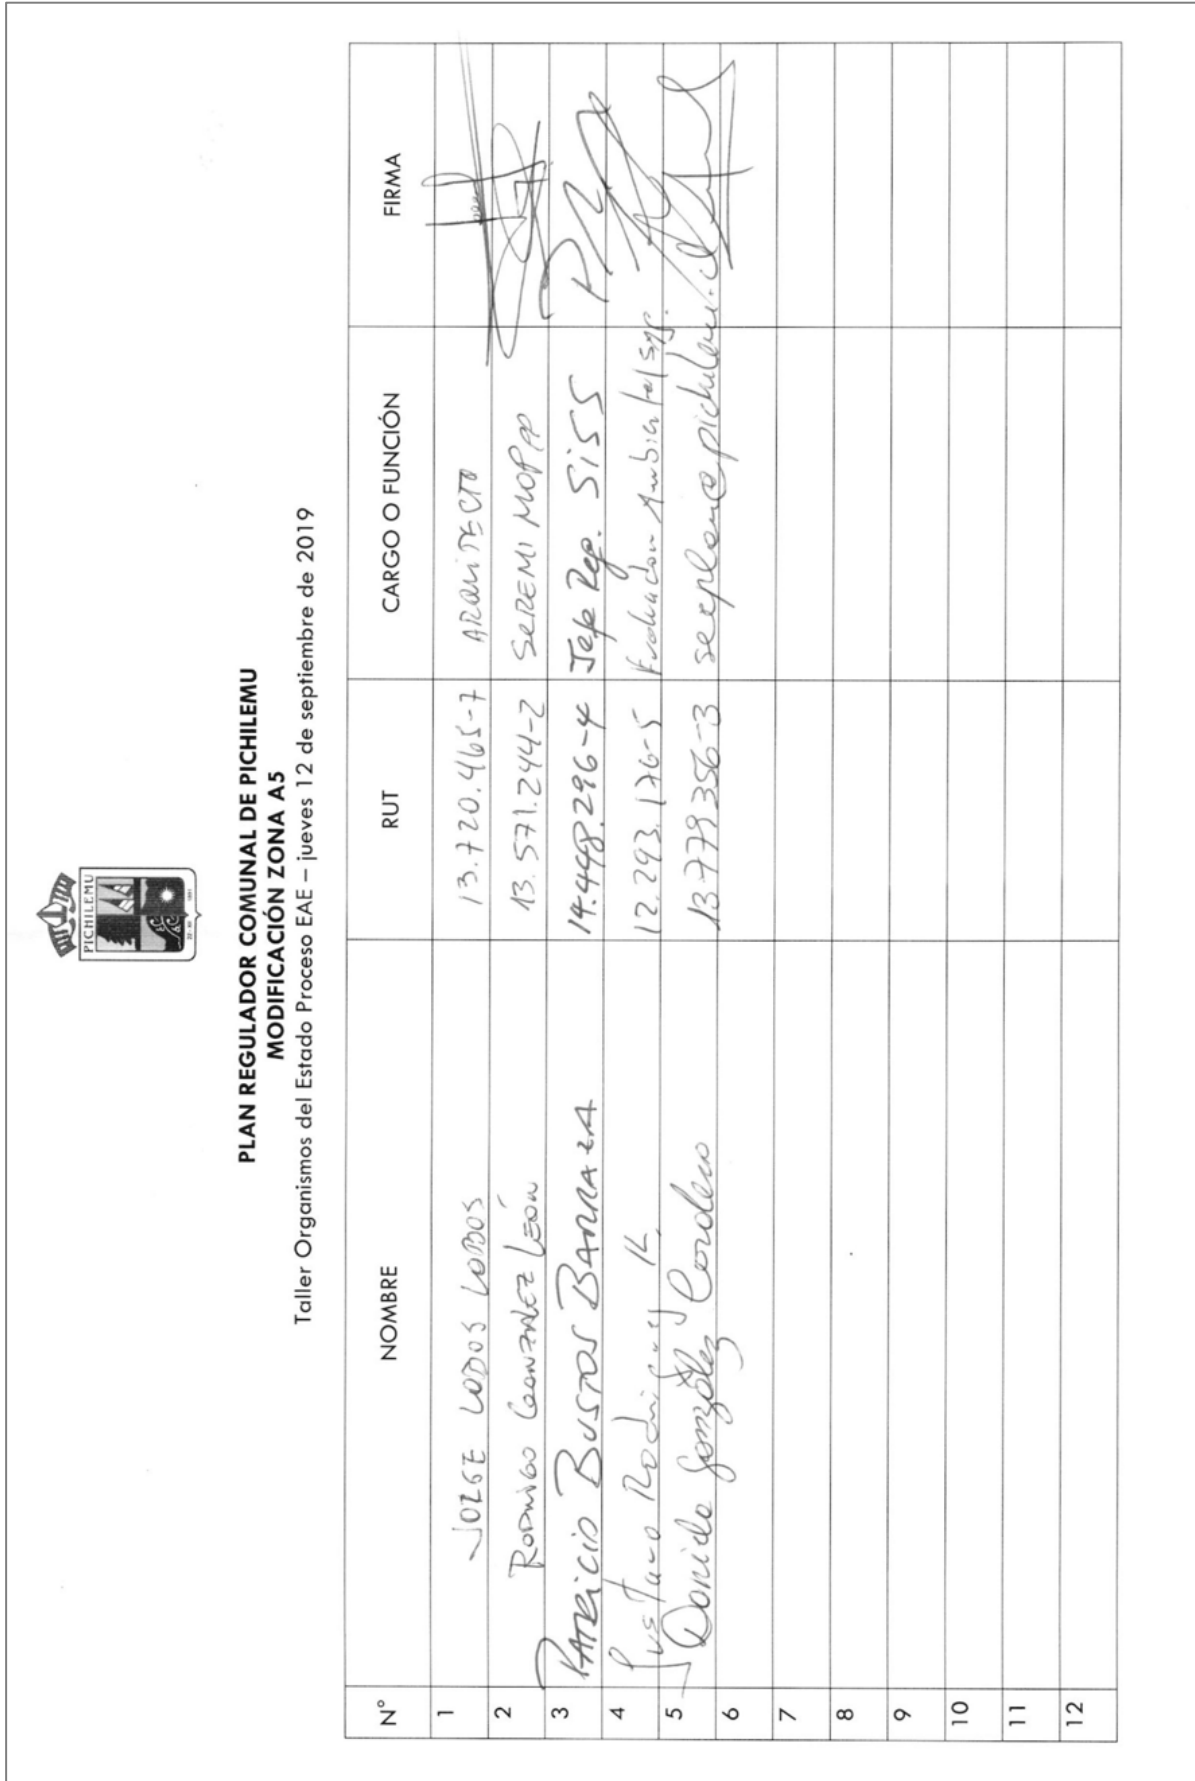 PICHILEMU
PLAN REGULADOR COMUNAL DE PICHILEMU
MODIFICACIÓN ZONA A5
Taller Organismos del Estado Proceso EAE – jueves 12 de septiembre de 2019
N° NOMBRE RUT CARGO O FUNCIÓN FIRMA
1 JORGE LOBOS LOBOS 13.720.465-7 ARQUITECTO
2 RODRIGO GONZALEZ LEÓN 13.571.244-2 SEREMI MOP
3 PATRICIO BUSTOS BARRAZA 14.448.296-4 Jefe Reg. SiSS
4 Gustavo Rodriguez K. 12.293.176-5 Evaluador Ambiental
5 Daniela González Cordero 13.779.356-3
6
7
8
9
10
11
12